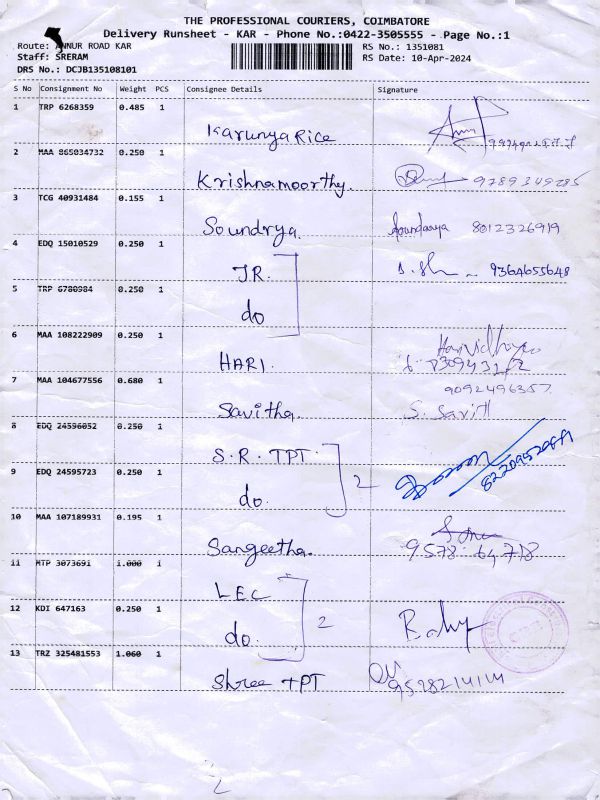 THE PROFESSIONAL COURIERS, COIMBATORE
Delivery Runsheet - KAR - Phone No.:0422-3505555 - Page No.:1
Route: ANNUR ROAD KAR
RS No.: 1351081
Staff: SRERAM
RS Date: 10-Apr-2024
DRS No.: DCJB135108101
S No Consignment No Weight PCS Consignee Details Signature
1 TRP 6268359 0.485 1
Karunya Rice
2 MAA 865034732 0.250 1
Krishnamoorthy. 9789349285
3 TCG 40931484 0.155 1
Soundrya. Soundarya 8012326919
4 EDQ 15010529 0.250 1
J.R. 9364655648
5 TRP 6780984 0.250 1
do
6 MAA 108222909 0.250 1
HARI.
7 MAA 104677556 0.680 1
9092496357
Savitha. S. Savith
8 EDQ 24596052 0.250 1
S.R. TPT.
9 EDQ 24595723 0.250 1
2
do.
10 MAA 107189931 0.195 1
Sangeetha.
11 MTP 3073691 1.000 1
LEC
12 KDI 647163 0.250 1
2
do.
13 TRZ 325481553 1.060 1
Shree TPT